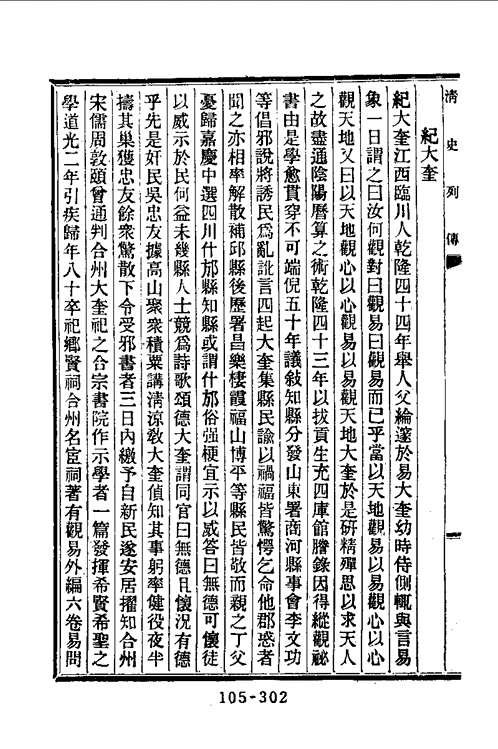 清史列傳
紀大奎
紀大奎江西臨川人乾隆四十四年舉人父綸邃於易大奎幼時侍側輒與言易
象一日謂之曰汝何觀對曰觀易曰觀易而已乎當以天地觀易以易觀心以心
觀天地又曰以天地觀心以心觀易以易觀天地大奎於是研精殫思以求天人
之故盡通陰陽曆算之術乾隆四十三年以拔貢生充四庫館謄錄因得縱觀祕
書由是學愈貫穿不可端倪五十年議敍知縣分發山東署商河縣事會李文功
等倡邪說將誘民爲亂訛言四起大奎集縣民諭以禍福皆驚愕乞命他郡惑者
聞之亦相率解散補邱縣後歷署昌樂棲霞福山博平等縣民皆敬而親之丁父
憂歸嘉慶中選四川什邡縣知縣或謂什邡俗强梗宜示以威答曰無德可懷徒
以威示於民何益未幾縣人士競爲詩歌頌德大奎謂同官曰無德且懷況有德
乎先是奸民吳忠友據高山聚衆積粟講淸涼敎大奎偵知其事躬率健役夜半
擣其巢獲忠友餘衆驚散下令受邪書者三日內繳予自新民遂安居擢知合州
宋儒周敦頤曾通判合州大奎祀之合宗書院作示學者一篇發揮希賢希聖之
學道光二年引疾歸年八十卒祀鄉賢祠合州名宦祠著有觀易外編六卷易問
105-302